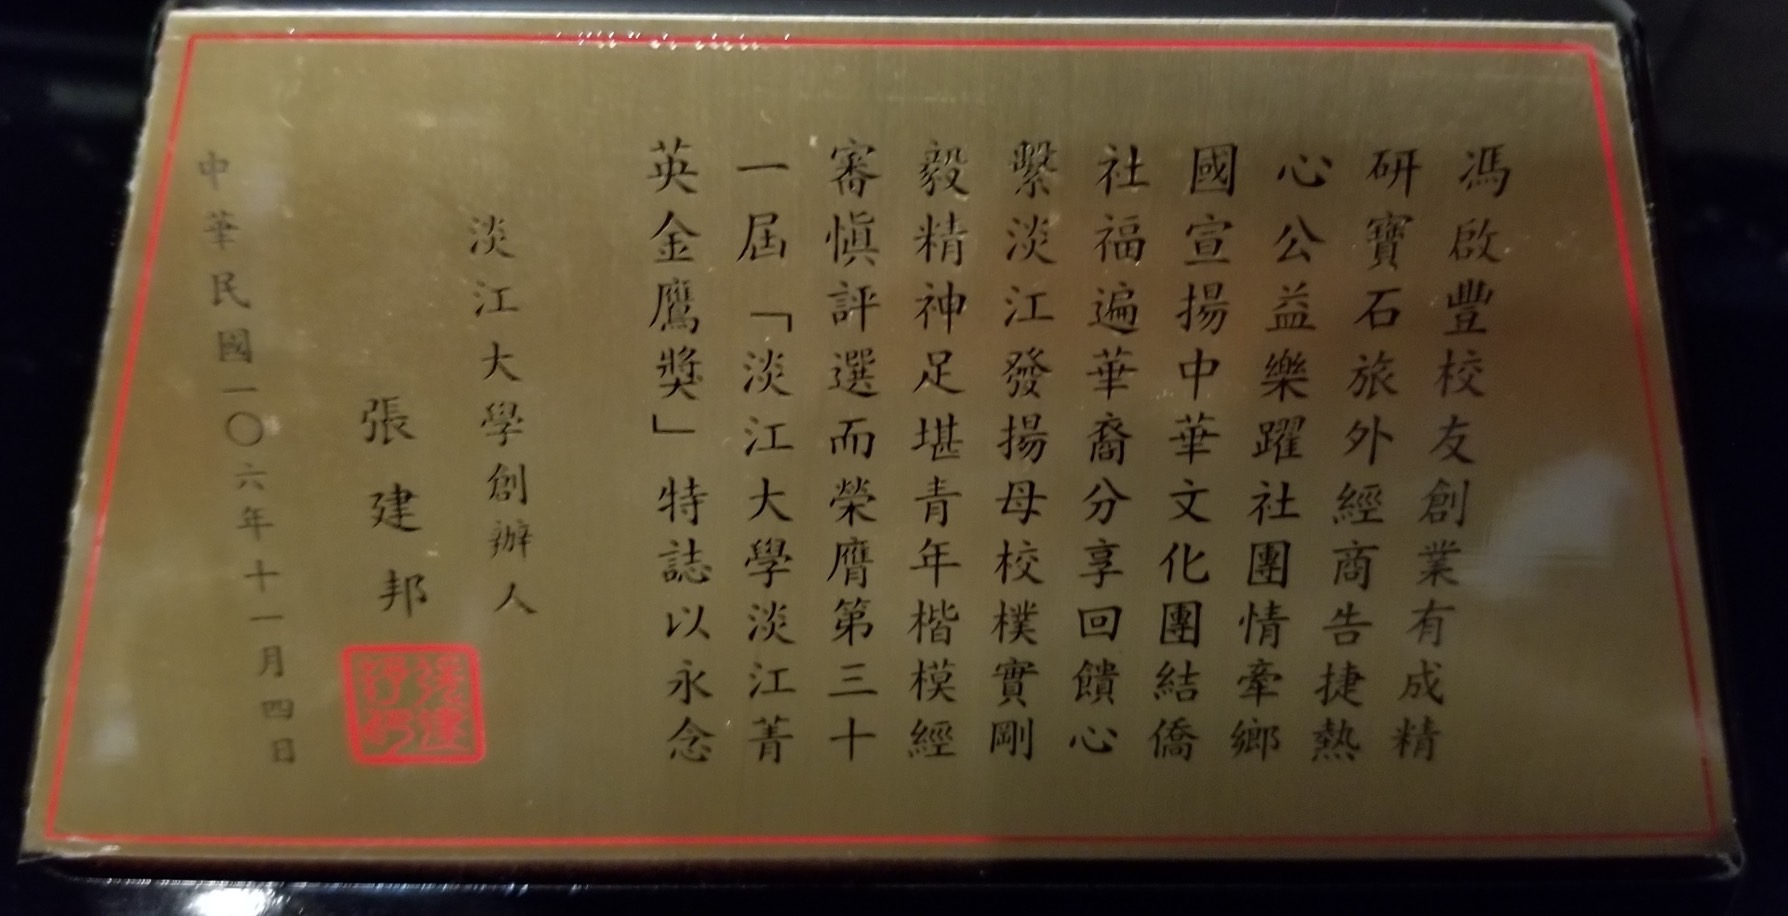 馮啟豐校友創業有成精
研寶石旅外經商告捷熱
心公益樂躍社團情牽鄉
國宣揚中華文化團結僑
社福遍華裔分享回饋心
繫淡江發揚母校樸實剛
毅精神足堪青年楷模經
審慎評選而榮膺第三十
一屆「淡江大學淡江菁
英金鷹獎」特誌以永念
淡江大學創辦人
張建邦
中華民國一〇六年十一月四日